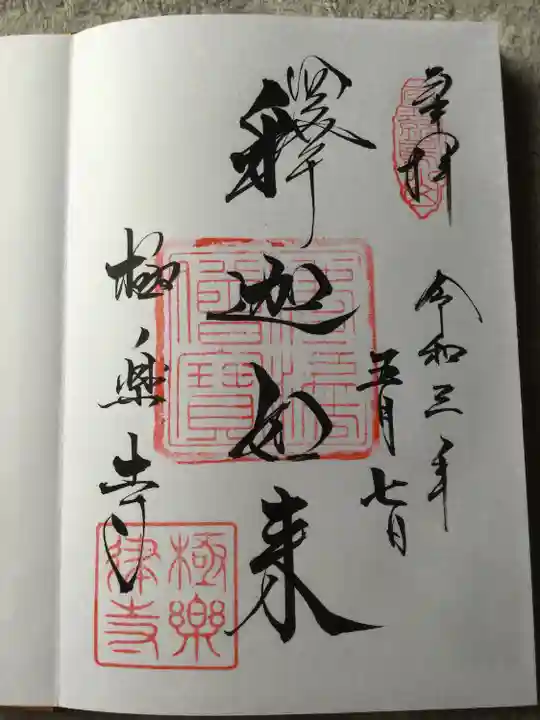 奉拝
令和三年
五月七日
釋迦如来
佛法僧寶
極楽寺
極樂律寺